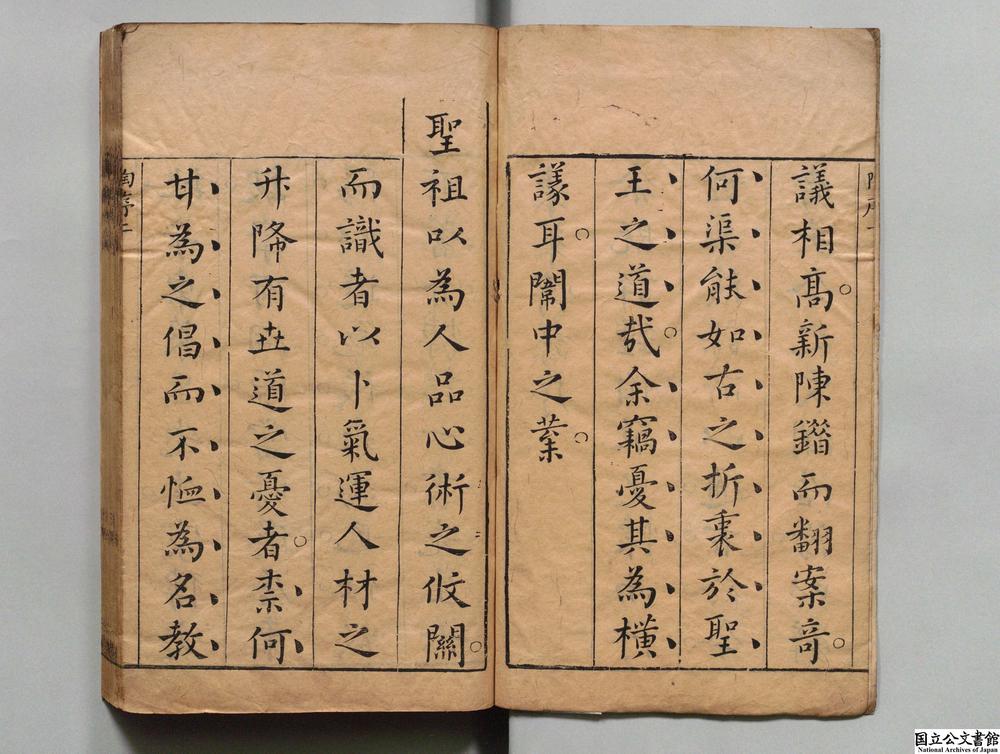 議相高新陳鐕而翻案竒
何渠能如古之折衷於聖
王之道哉余竊憂其為橫
議耳闈中之業
聖祖以為人品心術之攸關
而識者以卜氣運人材之
升降有世道之憂者柰何
甘為之倡而不恤為名教
陶序二
国立公文書館
National Archives of Japan